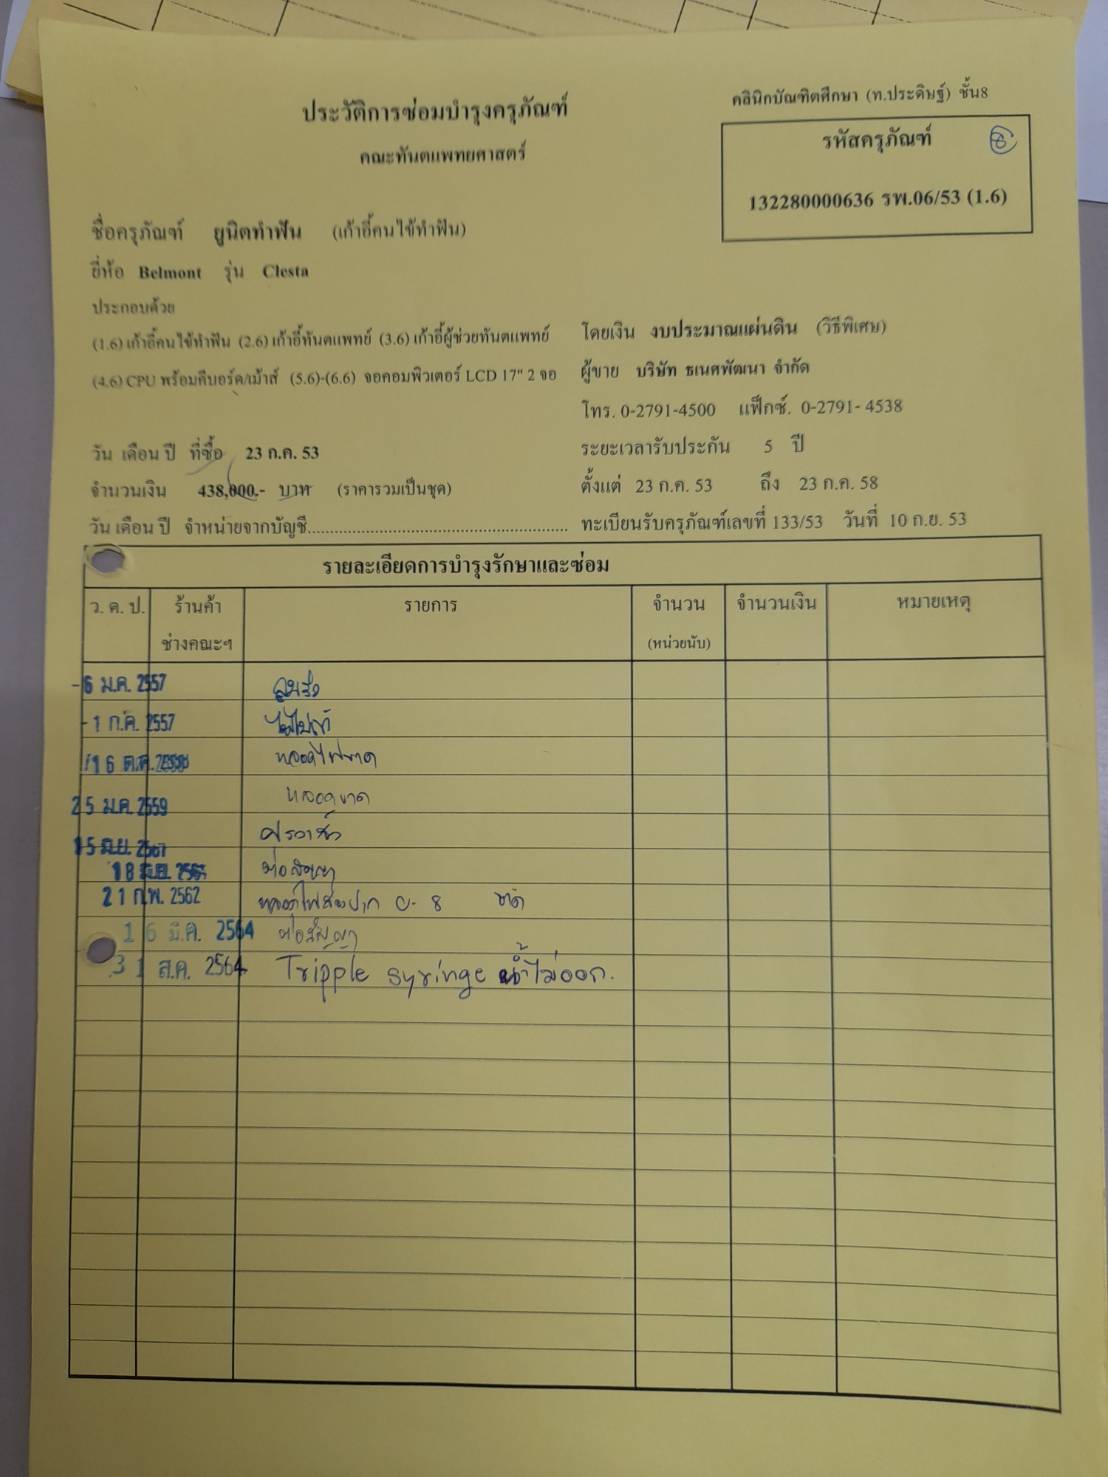 คลินิกบัณฑิตศึกษา (ท.ประดิษฐ์) ชั้น8
ประวัติการซ่อมบำรุงครุภัณฑ์
คณะทันตแพทยศาสตร์
รหัสครุภัณฑ์ 8
132280000636 รพ.06/53 (1.6)
ชื่อครุภัณฑ์ ยูนิตทำฟัน (เก้าอี้คนไข้ทำฟัน)
ยี่ห้อ Belmont รุ่น Clesta
ประกอบด้วย
(1.6) เก้าอี้คนไข้ทำฟัน (2.6) เก้าอี้ทันตแพทย์ (3.6) เก้าอี้ผู้ช่วยทันตแพทย์
(4.6) CPU พร้อมคีบอร์ด/เม้าส์ (5.6)-(6.6) จอคอมพิวเตอร์ LCD 17" 2 จอ
โดยเงิน งบประมาณแผ่นดิน (วิธีพิเศษ)
ผู้ขาย บริษัท ธเนศพัฒนา จำกัด
โทร. 0-2791-4500 แฟ็กซ์. 0-2791- 4538
วัน เดือน ปี ที่ซื้อ 23 ก.ค. 53
ระยะเวลารับประกัน 5 ปี
จำนวนเงิน 438,000.- บาท (ราคารวมเป็นชุด)
ตั้งแต่ 23 ก.ค. 53 ถึง 23 ก.ค. 58
วัน เดือน ปี จำหน่ายจากบัญชี..........................................
ทะเบียนรับครุภัณฑ์เลขที่ 133/53 วันที่ 10 ก.ย. 53
รายละเอียดการบำรุงรักษาและซ่อม
ว. ด. ป. ร้านค้า ช่างคณะฯ รายการ จำนวน (หน่วยนับ) จำนวนเงิน หมายเหตุ
-6 ม.ค. 2557 ลมรั่ว
-1 ก.ค. 2557
16 ต.ค. หลอดไฟขาด
25 ม.ค. 2559 หลอดขาด
15 มิ.ย.
18 มิ.ย. ท่อสัญญา
21 ก.พ. 2562 หลอดไฟส่องปาก U-8 ขาด
16 มี.ค. 2564 ท่อสัญญา
31 ส.ค. 2564 Tripple syringe น้ำไม่ออก.